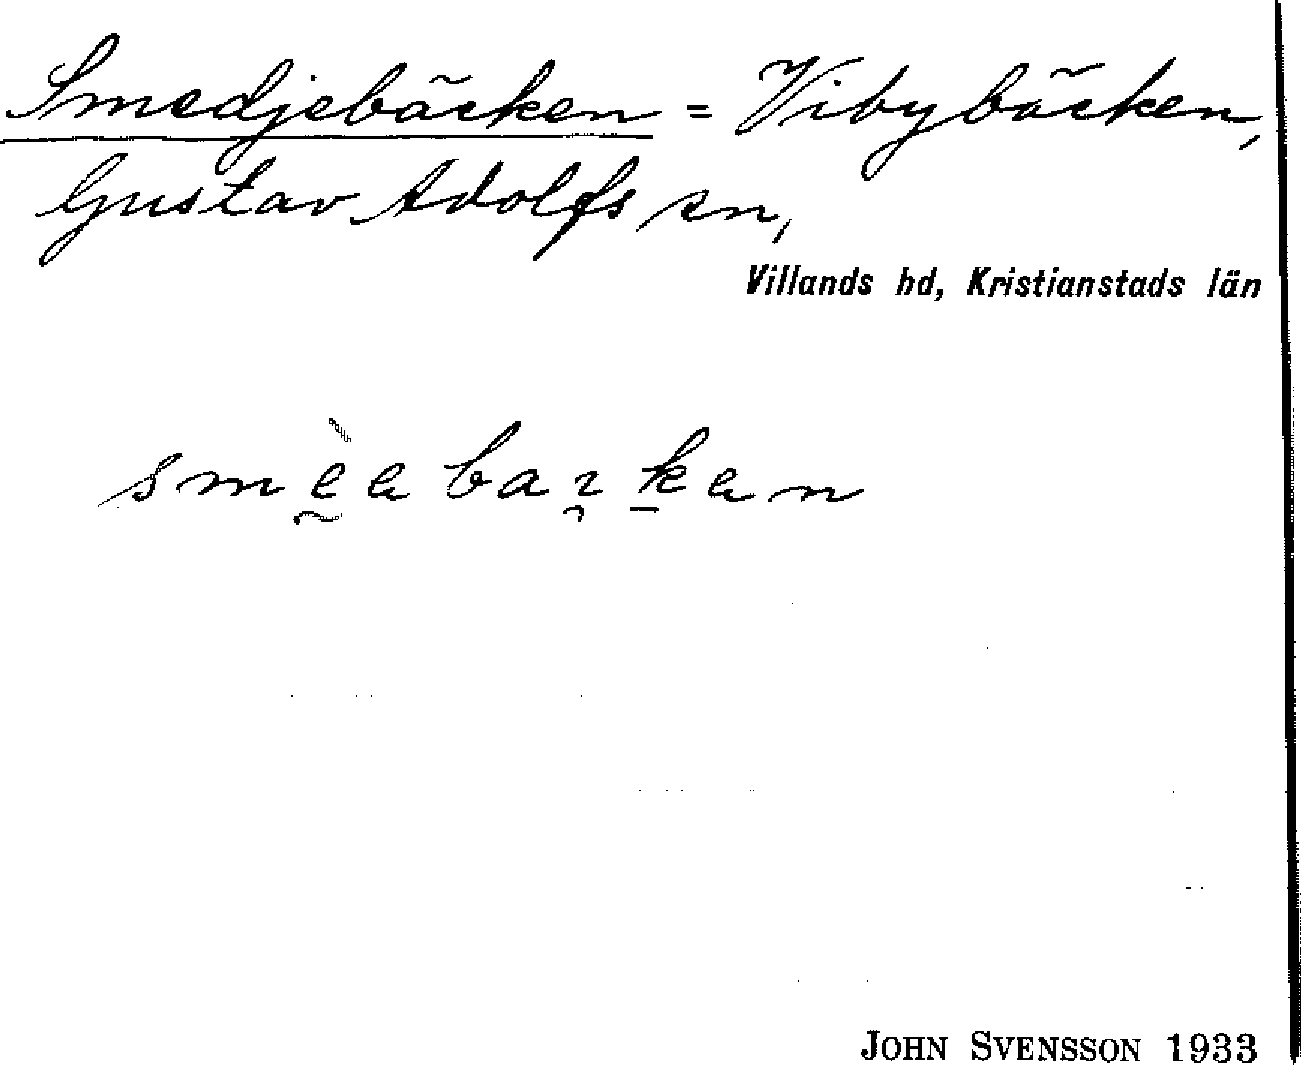 Smedjebäcken = Vibybäcken,
Gustav Adolfs sn,
Villands hd, Kristianstads län
JOHN SVENSSON 1933